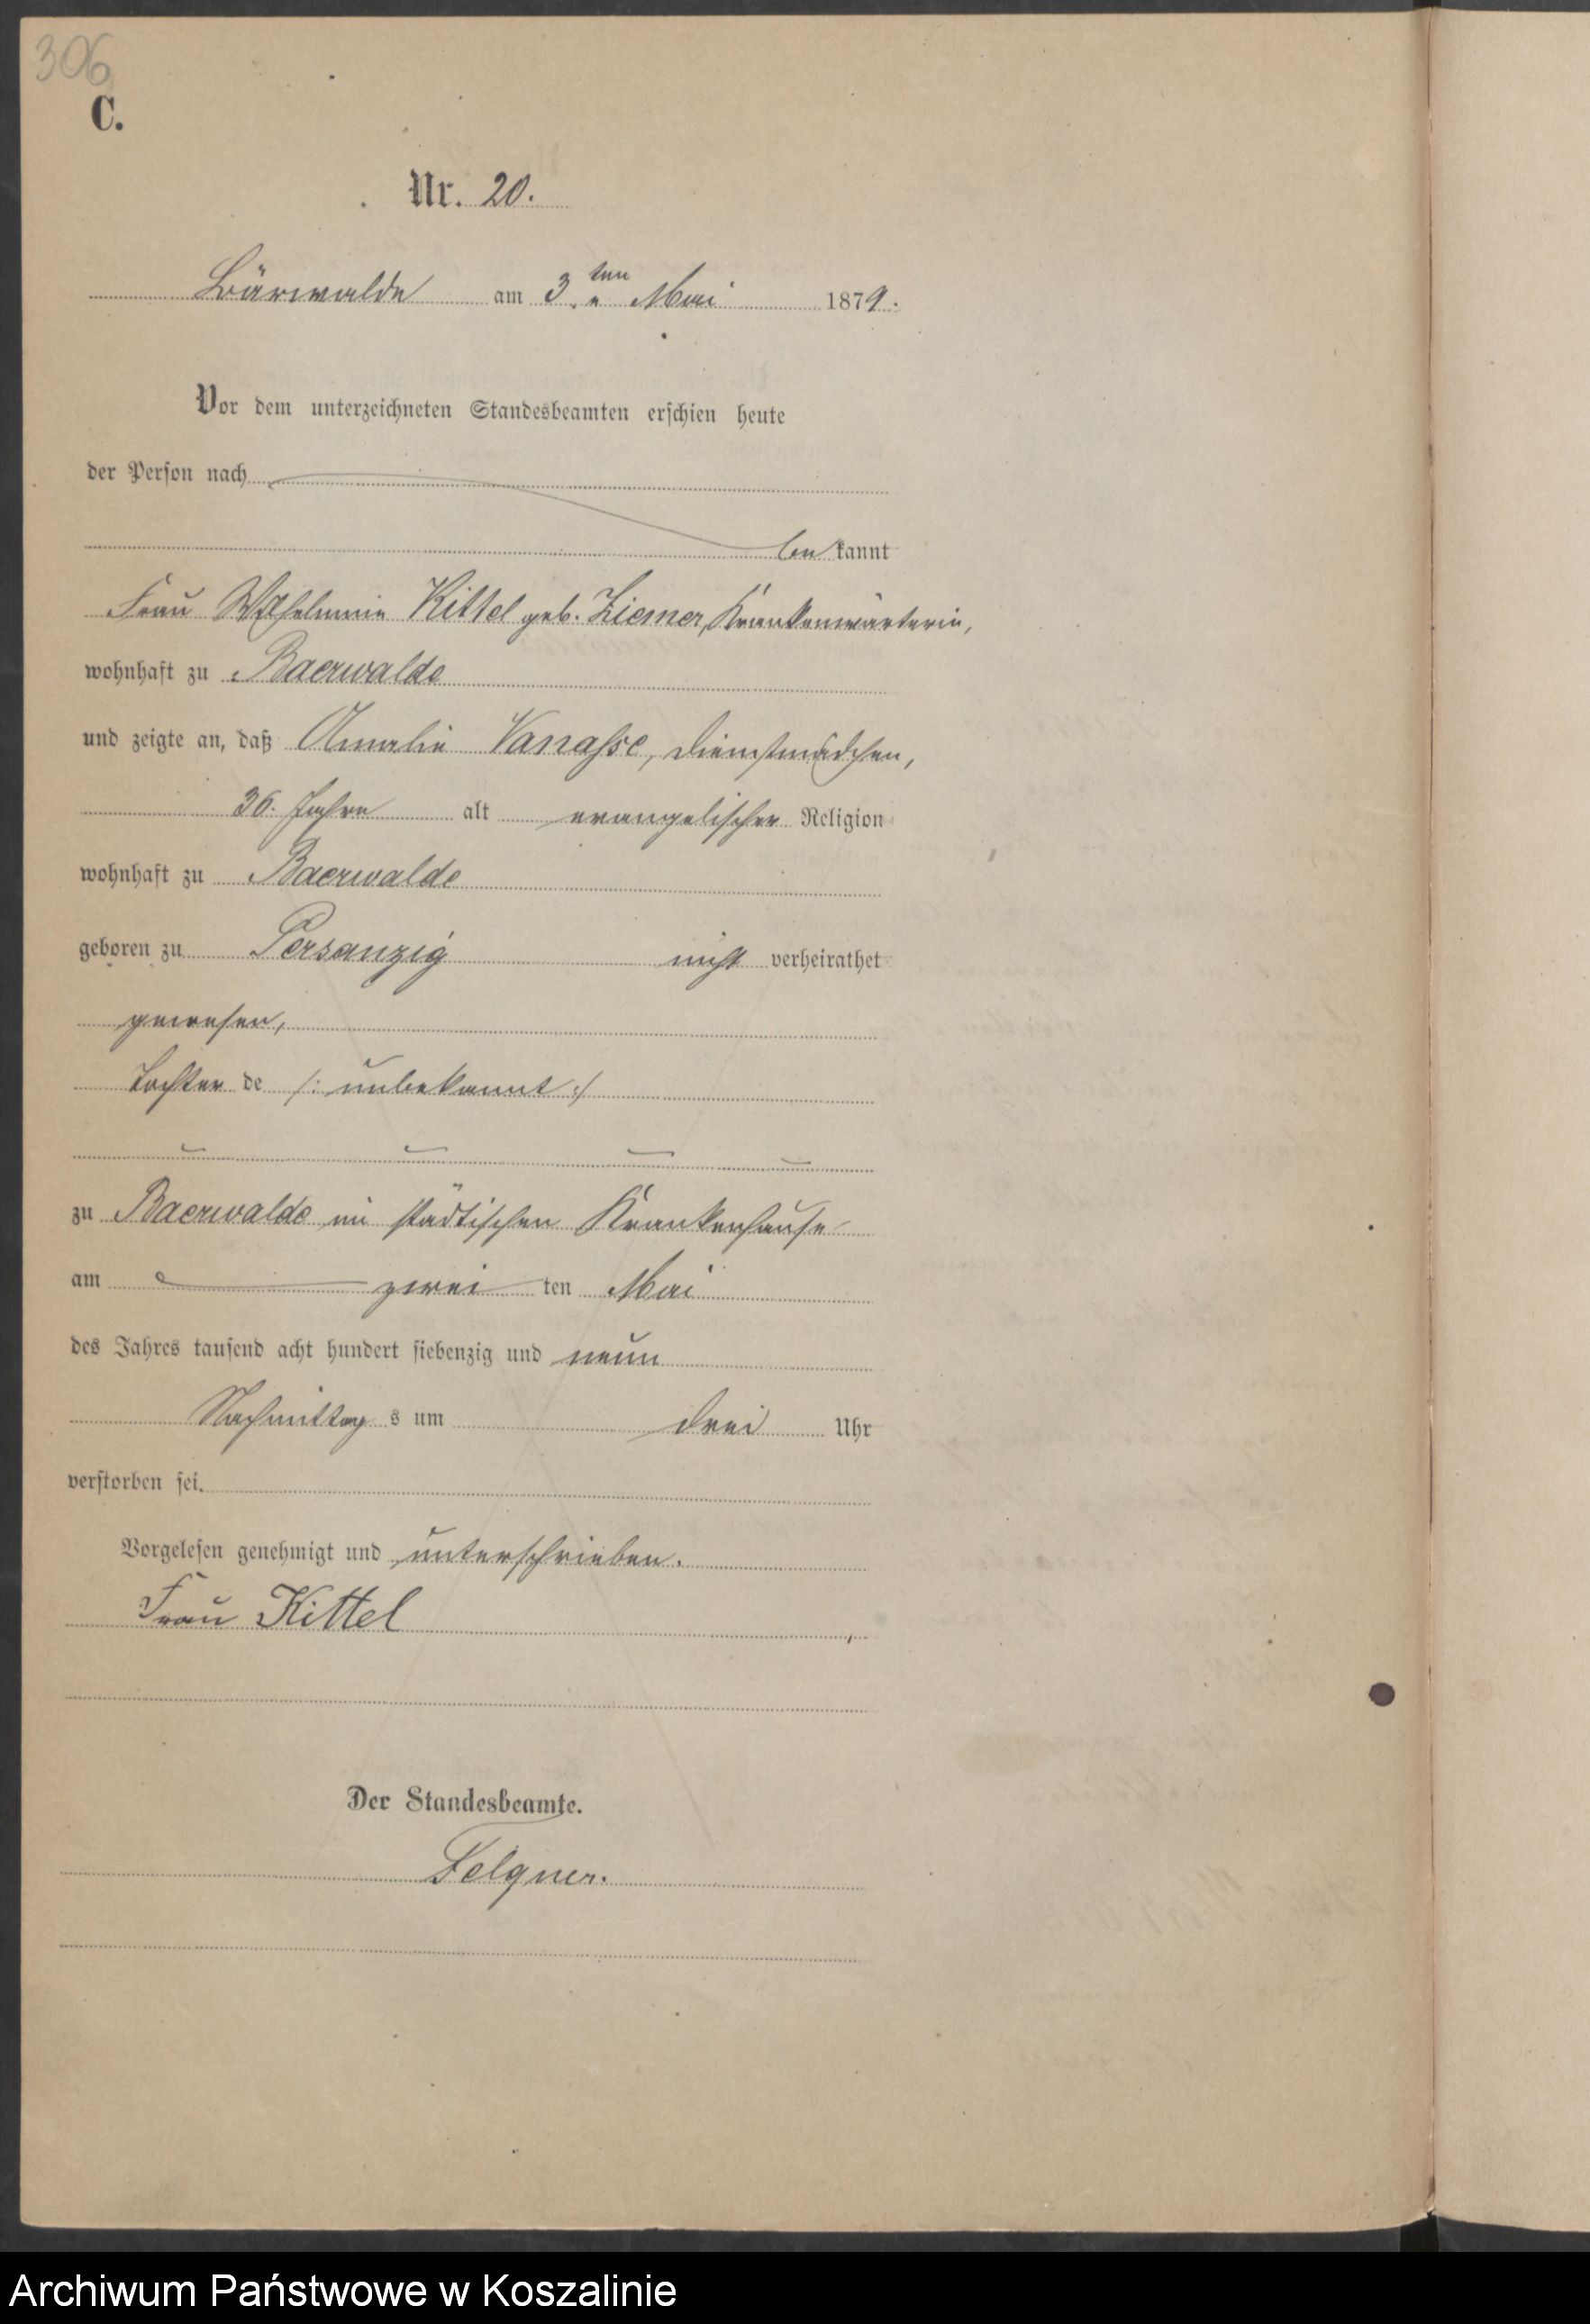 306
C.
Nr. 20.
Bärwalde am 3ten Mai 1879.
Vor dem unterzeichneten Standesbeamten erschien heute
der Person nach
be kannt
Frau Wilhelmine Kittel geb. Ziemer, Krankenwärterin,
wohnhaft zu Baerwalde
und zeigte an, daß Amalie Vanasse, Dienstmädchen,
36. Jahre alt evangelischer Religion
wohnhaft zu Baerwalde
geboren zu Persanzig nicht verheirathet
gewesen,
Tochter de /: unbekannt :/
zu Baerwalde im städtischen Krankenhause
am zwei ten Mai
des Jahres tausend acht hundert siebenzig und neun
Nachmittag s um drei Uhr
verstorben sei.
Vorgelesen genehmigt und unterschrieben.
Frau Kittel
Der Standesbeamte.
Felgner.
Archiwum Państwowe w Koszalinie